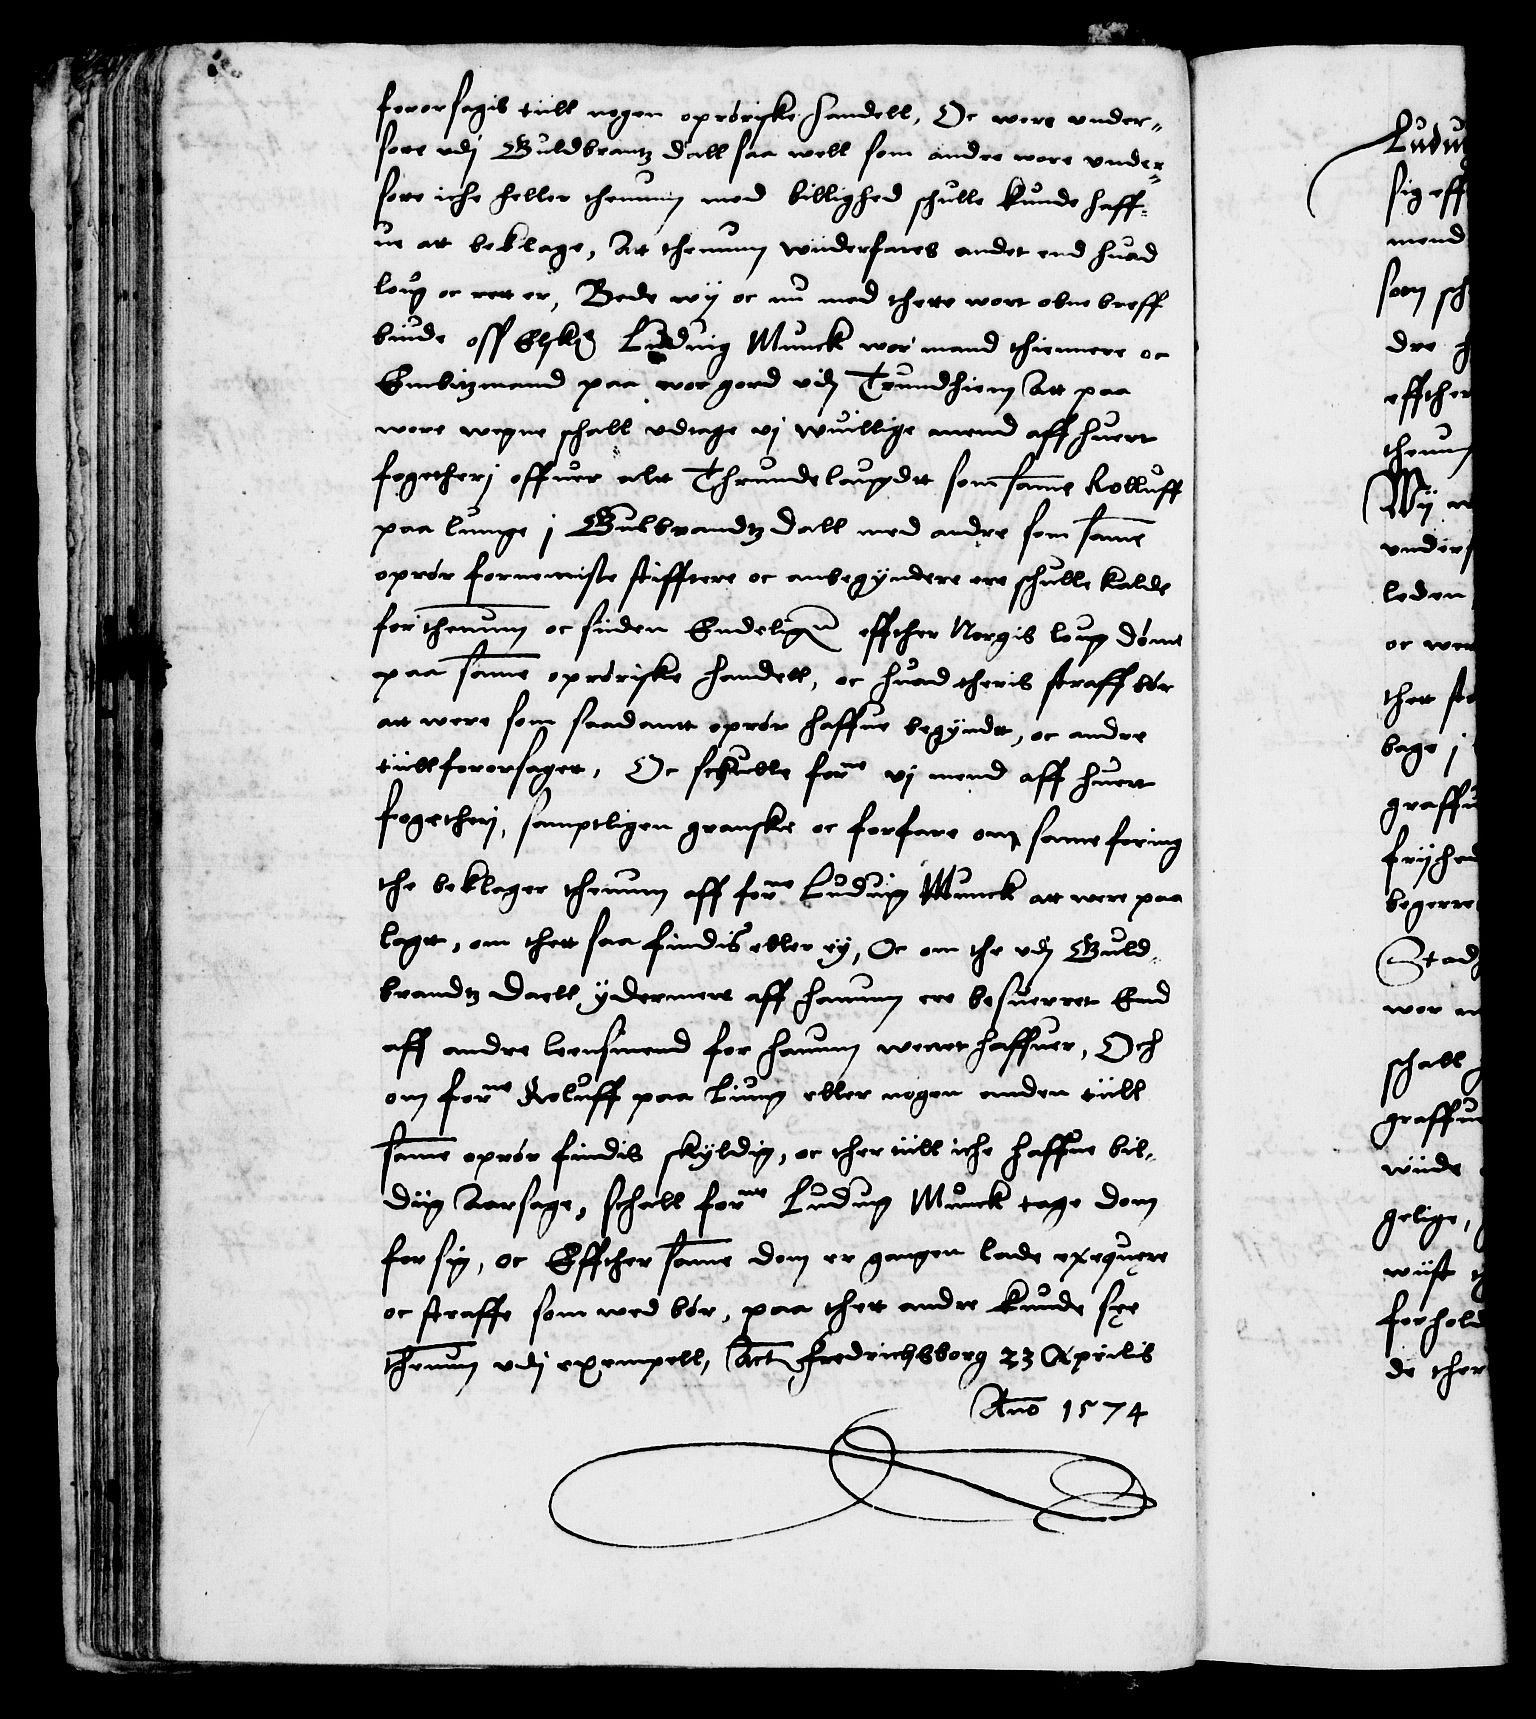 fororsagis tiill nogen oprøriske handell, Oc wore vnder„
sore vdj Guldbrantz dall saa well som andre wore vnder„
sore iche heller thennum med billighed schulle kunde haff„
ue att beklage, Att thennum wiiderfares andet end huad
loug oc rett er, Bede wÿ oc nu med thette wort obne breff
biude oss Elske Luduig Munck wor mand thiennere oc
Embitzmand paa wor gord vdj Trundhiem Att paa
wore wegne schall vdtage vj wuillige mend aff huert
fogetherj offuer altt Thrundelaugdtt som same Rolluff
paa lunge j Gulbrandtz dall med andre som same
oprør fornemiste stifftere oc anbegÿndere ere schulle kalde
for thennum oc siiden Endelign effther Norgis loug døme
paa same oprøriske handell, oc huad theris straff bør
att were som saadantt oprør haffue begÿndtt, oc andre
tiill forarsagett, Oc schulle forne vj mend aff huert
fogetherj, samptligen granske oc forfare om same foring
the beklager thennum aff forne Luduig Munck att were paa
lagtt, om thett saa findis eller ey, Oc om the vdj Guld„
brandtz daell ÿdermere aff hanum ere besuerret End
aff andre leensmend for hanum werret haffuer, Och
om forne Roluff paa Liung eller nogen anden tiill
same oprør findis skÿldig, oc ther tiill iche haffue bil„
diig Aarsage, schall forne Ludug Munck tage dom
for sig, oc Effther same dom er gangen lade exequere
oc straffe som wed bør, paa thett andre kunde see
thennum vdj exempell, Act Fredrichsborg 23 Aprilis
Ano 1574
Ludu
sig eff
mend
som sch
dre
effther
thenn
Wÿ w
vnders
leden
oc wer
thett
bage j
graffu
frÿhed
begerre
Stad
wor
schall
graffu
wiide
gelige,
wiist
forhold
de ther